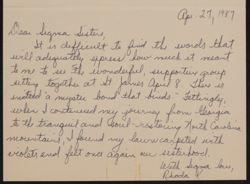 Apr. 27, 1987
Dear Sigma Sister,
It is difficult to find the words that
will adequately express how much it meant
to me to see the wonderful, supportive group
sitting together at St. James April 8. There is
indeed a "mystic bond that binds". Fittingly,
when I continued my journey from Georgia
to the tranquil and soul-restoring North Carolina
mountains, I found my lawn carpeted with
violets and felt once again our sisterhood.
With Sigma love,
Rhoda